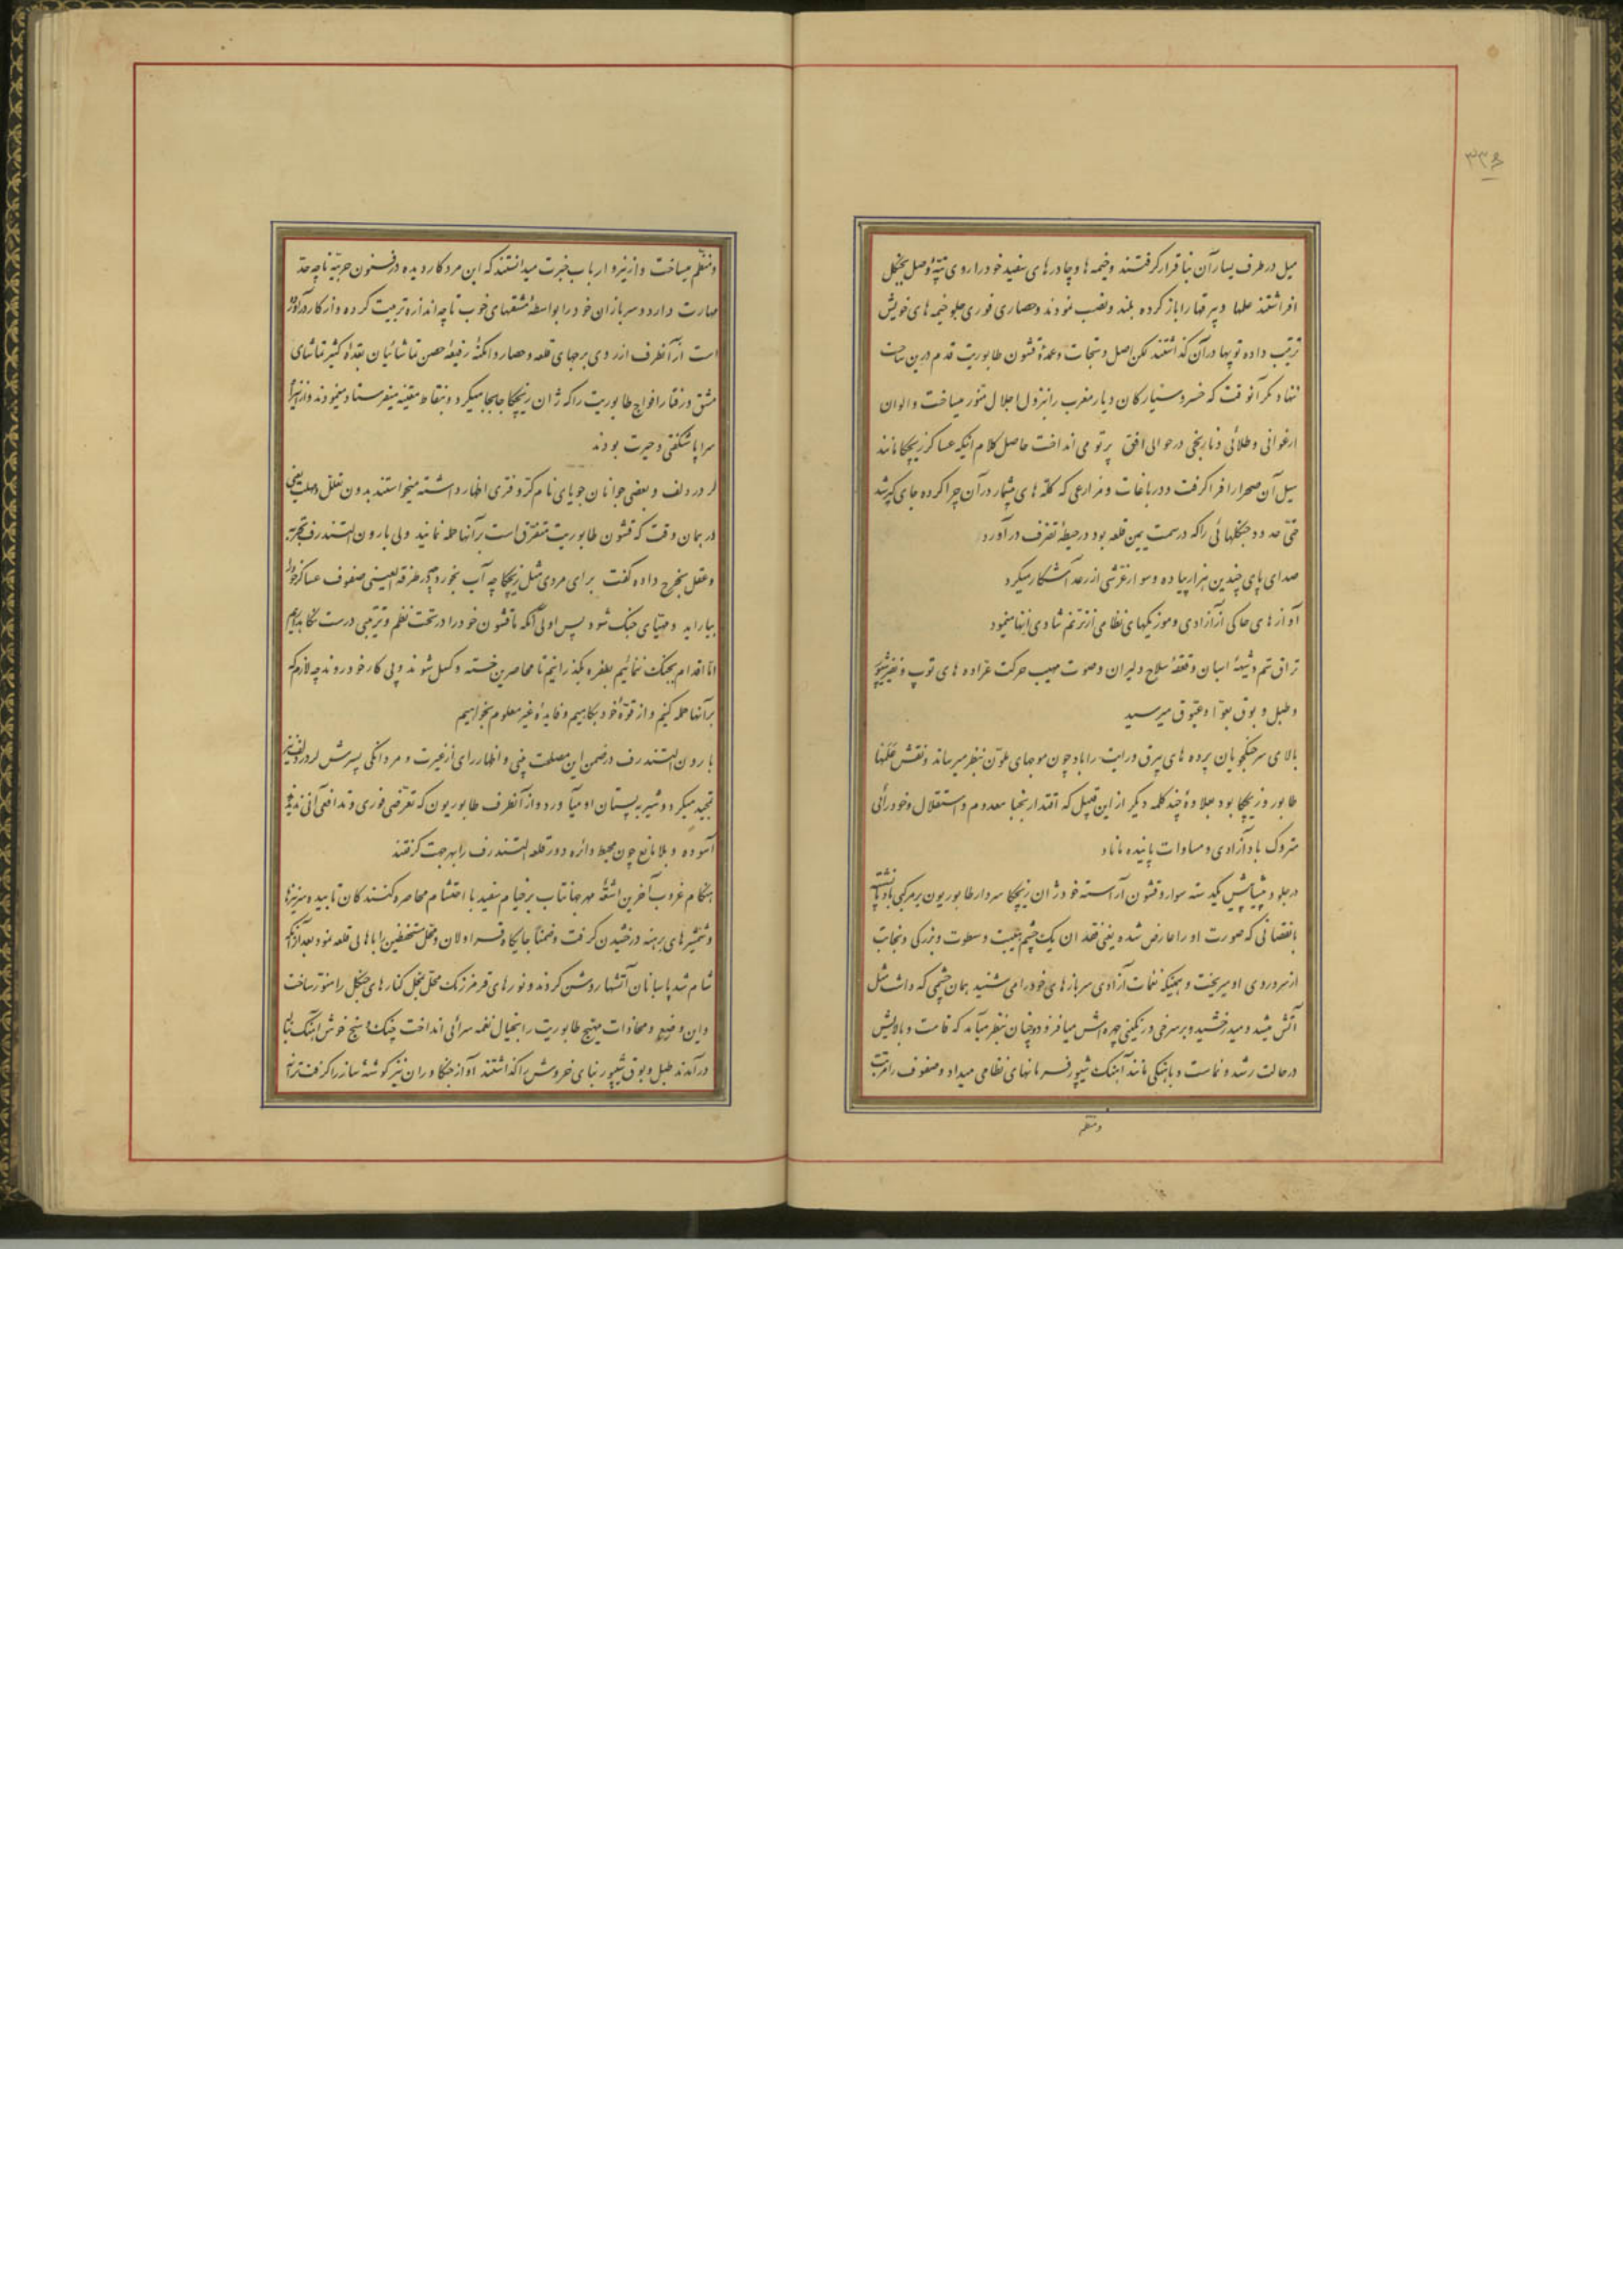 ۳۳۶
میل در طرف یسار آن بنا قرار گرفتند و خیمه ها و چادرهای سفید خود را روی تپهٔ وصل بجنگل
افراشتند علمها و بیرقها را باز کرده بلند و نصب نمودند و حصاری فوری جلو خیمه های خویش
ترتیب داده توپها در آن گذاشتند لکن اصل و نجات و عمدهٔ قشون طابوریت قدم در بن ساحت
ننهاد مگر آنوقت که خسرو سیارکان دیار مغرب را بنزول اجلال منور میساخت و الوان
ارغوانی و طلائی و نارنجی در حوالی افق پرتو می انداخت حاصل کلام اینکه عساکر زیچکا مانند
سیل آن صحرا را فرا گرفت و در باغات و مزارعی که گله های بیشمار در آن چرا کرده جای گیر شد
حتی حدود جنگلهائی را که در سمت یمین قلعه بود در حیطهٔ تصرف در آورد
صدای پای چندین هزار پیاده و سوار غرشی از رعد آشکار میکرد
آوازهای حاکی از آزادی و موزیکهای نظامی از ترنم شادی آنها مینمود
تراق سم و شیههٔ اسبان و قعقعهٔ سلاح دلیران و صوت مهیب حرکت عراده های توپ و نفیر شیپور
و طبل و بوق بعوا و عیوق میرسید
بالای سر جنگجویان پرده های بیرق و رایت را باد چون موجهای ملون بنظر میرساند و نقش علمها
طابور و زیچکا بود بعلاوهٔ چند کلمه دیگر از این قبیل که اقتدار نجبا معدوم و استقلال و خودرائی
متروک باد آزادی و مساوات پاینده ماناد
در جلو و پیشاپیش یکدسته سوار و قشون آراسته خود ژان زیچکا سردار طابوریون بر مرکبی بادپا نشسته
با نقصانی که صورت او را عارض شده یعنی فقدان یک چشم هیبت و سطوت و بزرگی و نجابت
از سر و روی او میریخت و همینکه نغمات آزادی سربازهای خود را می شنید همان چشمی که داشت مثل
آتش میشد و میدرخشید و بر سرخی و رنگینی چهره اش میافزود و چنان بنظر میآمد که قامت و بالایش
در حالت رشد و نماست و بآهنگی مانند آهنگ شیپور فرمانهای نظامی میداد و صفوف را مرتب
و منظم
و منظم میساخت و از نیرو ارباب خبرت میدانستند که این مرد کار دیده در فنون حربیه تا چه حد
مهارت دارد و سربازان خود را بواسطهٔ مشقهای خوب تا چه اندازه تربیت کرده و از کار درآورده
است از آنطرف از روی برجهای قلعه و حصار و امکنهٔ رفیعهٔ حصن تماشائیان بعدهٔ کثیر تماشای
مشق و رفتار افواج طابوریت را که ژان زیچکا جابجا میکرد و بنقاط معینه میفرستاد مینمودند و از اینرو
سراپا شگفتی و حیرت بودند
لر در دلف و بعضی جوانان جویای نام کر و فری اظهار داشته میخواستند بدون تعلل و مهلت یعنی
در همان وقت که قشون طابوریت متفرق است بر آنها حمله نمایند ولی بارون التندرف تجربه
و عقل بخرج داده گفت برای مردی مثل زیچکا چه آب بخورد در طرفة العینی صفوف عساکر خود را
بیاراید و مهیای جنگ شود پس اولی آنکه ما قشون خود را در تحت نظم و ترتیبی درست نگاهداریم
اما اقدام بجنگ ننمائیم بطفره بگذرانیم تا محاصرین خسته و کسل شوند و پی کار خود روند چه لازم که
بر آنها حمله کنیم و از قوهٔ خود بکاهیم و فایدهٔ غیر معلوم بخواهیم
بارون التندرف در ضمن این مصلحت بینی و اظهار رای از غیرت و مردانگی پسرش لر در دلف نیز
تمجید میکرد و شیر به پستان او میآورد و از آنطرف طابوریون که تعرضی فوری و تدافعی آنی ندیدند
آسوده و بلامانع چون محیط دائره دور قلعه التندرف را بهر جهت گرفتند
هنگام غروب آخرین اشعهٔ مهر جهانتاب بر خیام سفید با احتشام محاصره کنندگان تابید و نیزه ها
و شمشیرهای برهنه درخشیدن گرفت و ضمناً جایگاه قراولان و محل مستحفظین را باهالی قلعه نمود بعد از آنکه
شام شد پاسبانان آتشها روشن کردند و نورهای قرمز رنگ محل بمحل کنارهای جنگل را منور ساخت
و این وضع و محاذات مهیج طابوریت را بخیال نغمه سرائی انداخت چنگ و سنج خوش آهنگ بناله
درآمدند طبل و بوق شیپور بنای خروش را گذاشتند آواز جنگاوران نیز گوشهٔ ساز را گرفت ترانه